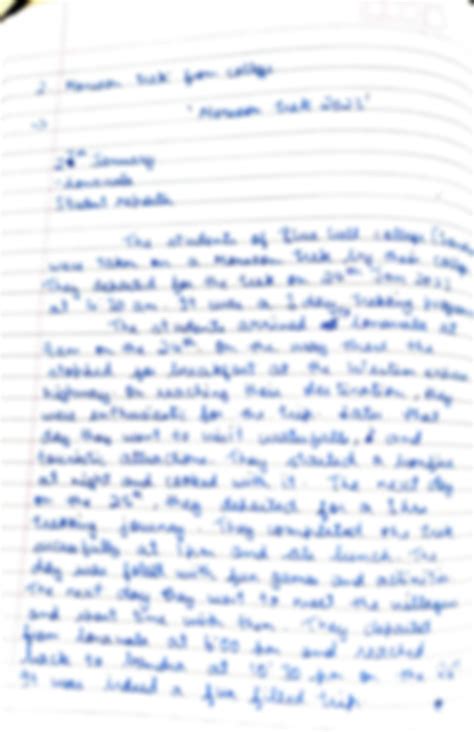 2 Monsoon trek from college
→ 'Monsoon trek 2022'
January
Lonavala
Student reporter
The students of college
were taken on a Monsoon trek by their college
They departed for the trek on 24th Jan 2022
at 4:30 am. It was a 3 day trekking program
The students arrived at Lonavala at
on the 24th. On the way there the
stopped for breakfast at the Western express
highway. On reaching their destination, they
were enthusiastic for the trip. Later that
day they went to visit waterfalls, and
touristic attractions. They started a bonfire
at night and cooked with it. The next day
on the 25th, they departed for a
trekking journey. They completed the trek
at 1pm and ate lunch. The
day was filled with fun games and activities
The next day they went to meet the villagers
and spent time with them. They departed
from Lonavala at 6:00 pm and reached
back to at 10:30 pm on the 26
It was indeed a fun filled trip